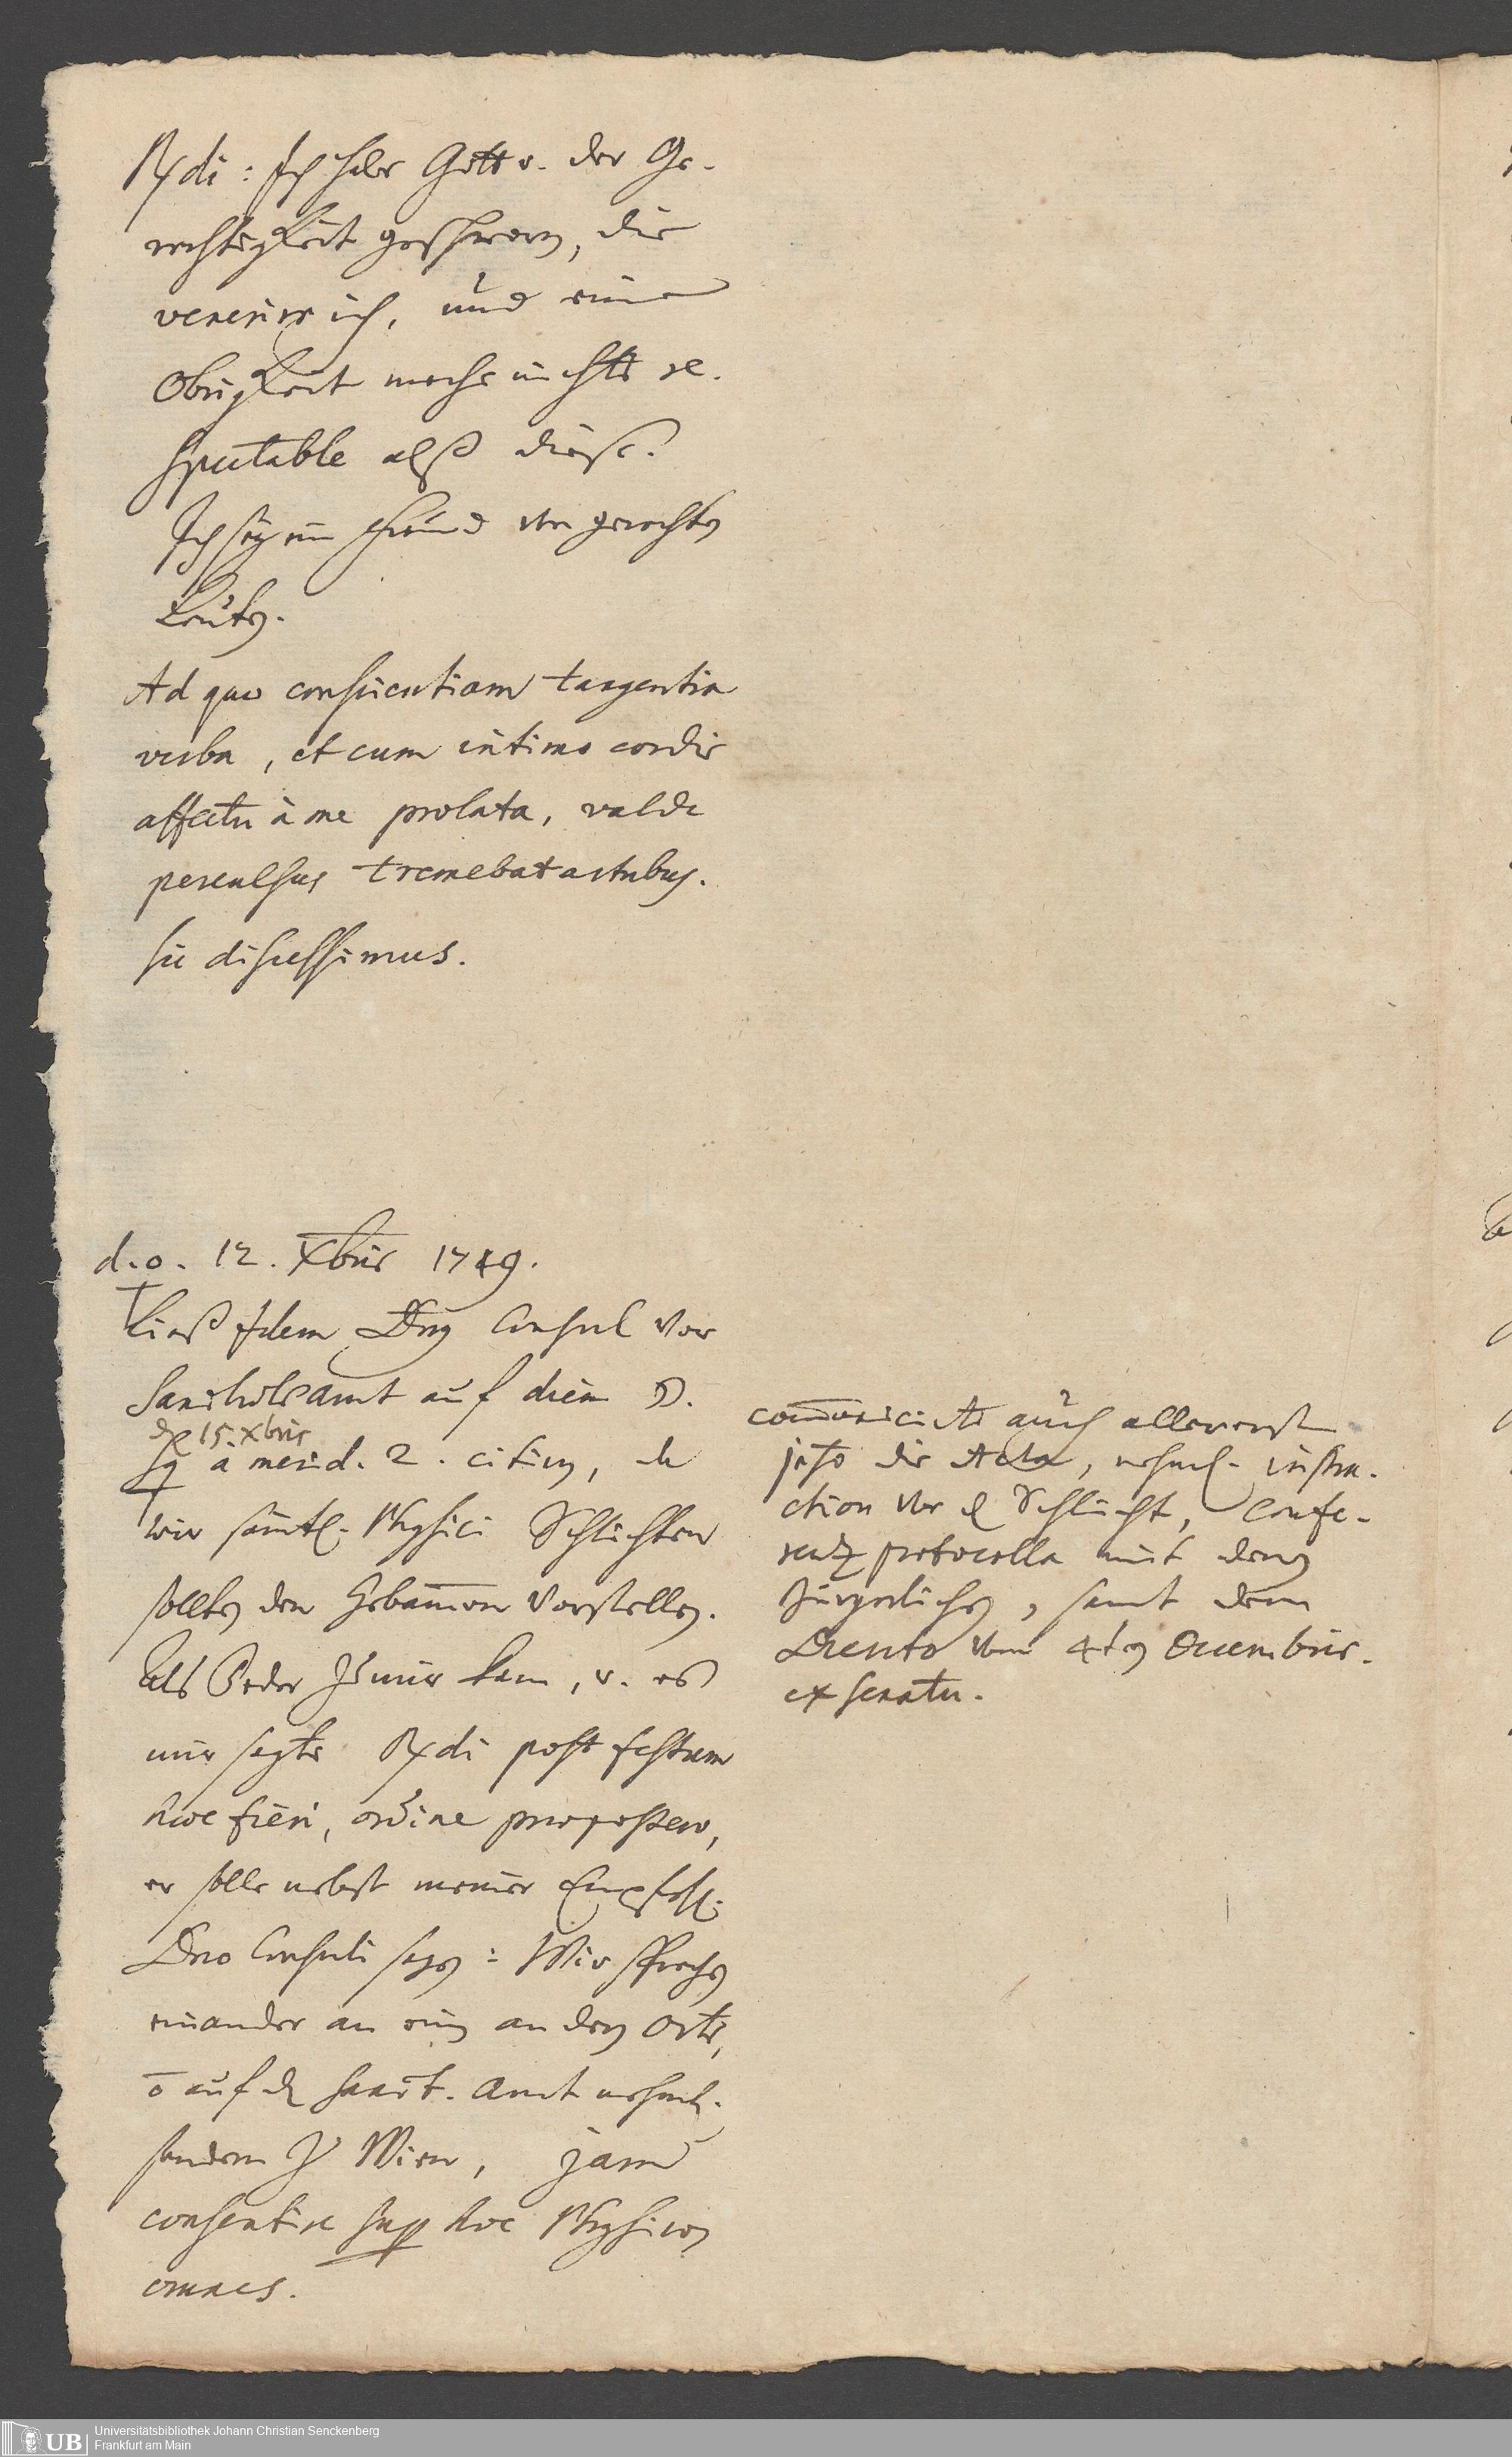 Rxdi: Ich habe Gott v. der Ge-
rechtigkeit geschworen, die
venerire ich, und eine
Obrigkeit mache nichts re-
spectable alß diese.
Ich sey ein Freund von gerechten
Leuten.
Ad quae conscientiam tangentia
verba, et cum intimo cordis
affectu à me prolata, valde
perculsus tremebat artubus.
sic discessimus.
d. 0. 12. Xbris 1749.
ließ idem Dnus Consul vor
Sanitätsamt auf diem
d 15. Xbris
à merid. 2. citiren, da
wir sämtl. Physici Schlichten
sollten den Hebammen Vorstellen.
Als Peder zu mir kam, v. es
mir sagte Rxdi post festum
hoc fieri, ordine praepostero,
er solle nebst meiner Empfehl.
Dno Consuli sagen: Wir sprechen
einander an einem andern Orte,
auf d Sanit. Amt nehml.
sondern zu Wien, jam
consentire sup hoc Physicos
omnes.
communicirte auch allererst
jetzo die Acta, nehml. instru-
ction vor d Schlicht, Confe-
renz protocolla mit denen
Bürgerlichen, samt dem
Decreto vom 4ten Decembris.
ex senatu.
Universitätsbibliothek Johann Christian Senckenberg
Frankfurt am Main
UB